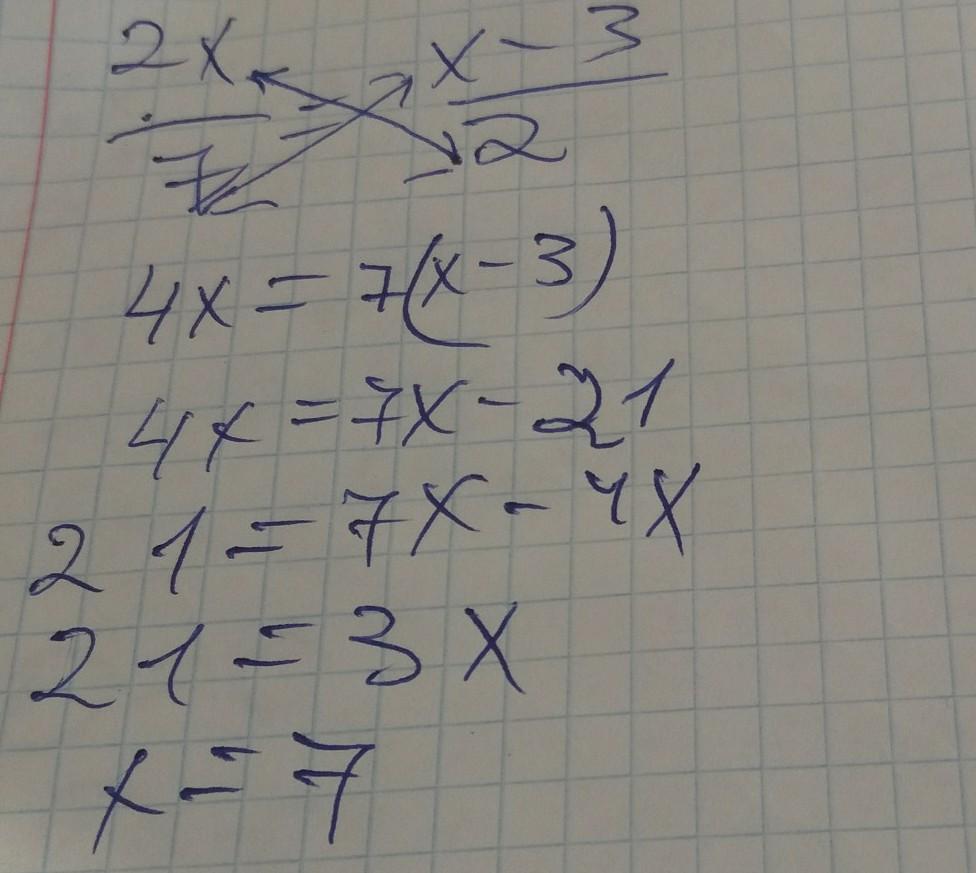 2x/7 = x-3/2
4x = 7(x-3)
4x = 7x-21
21 = 7x-4x
21 = 3x
x = 7